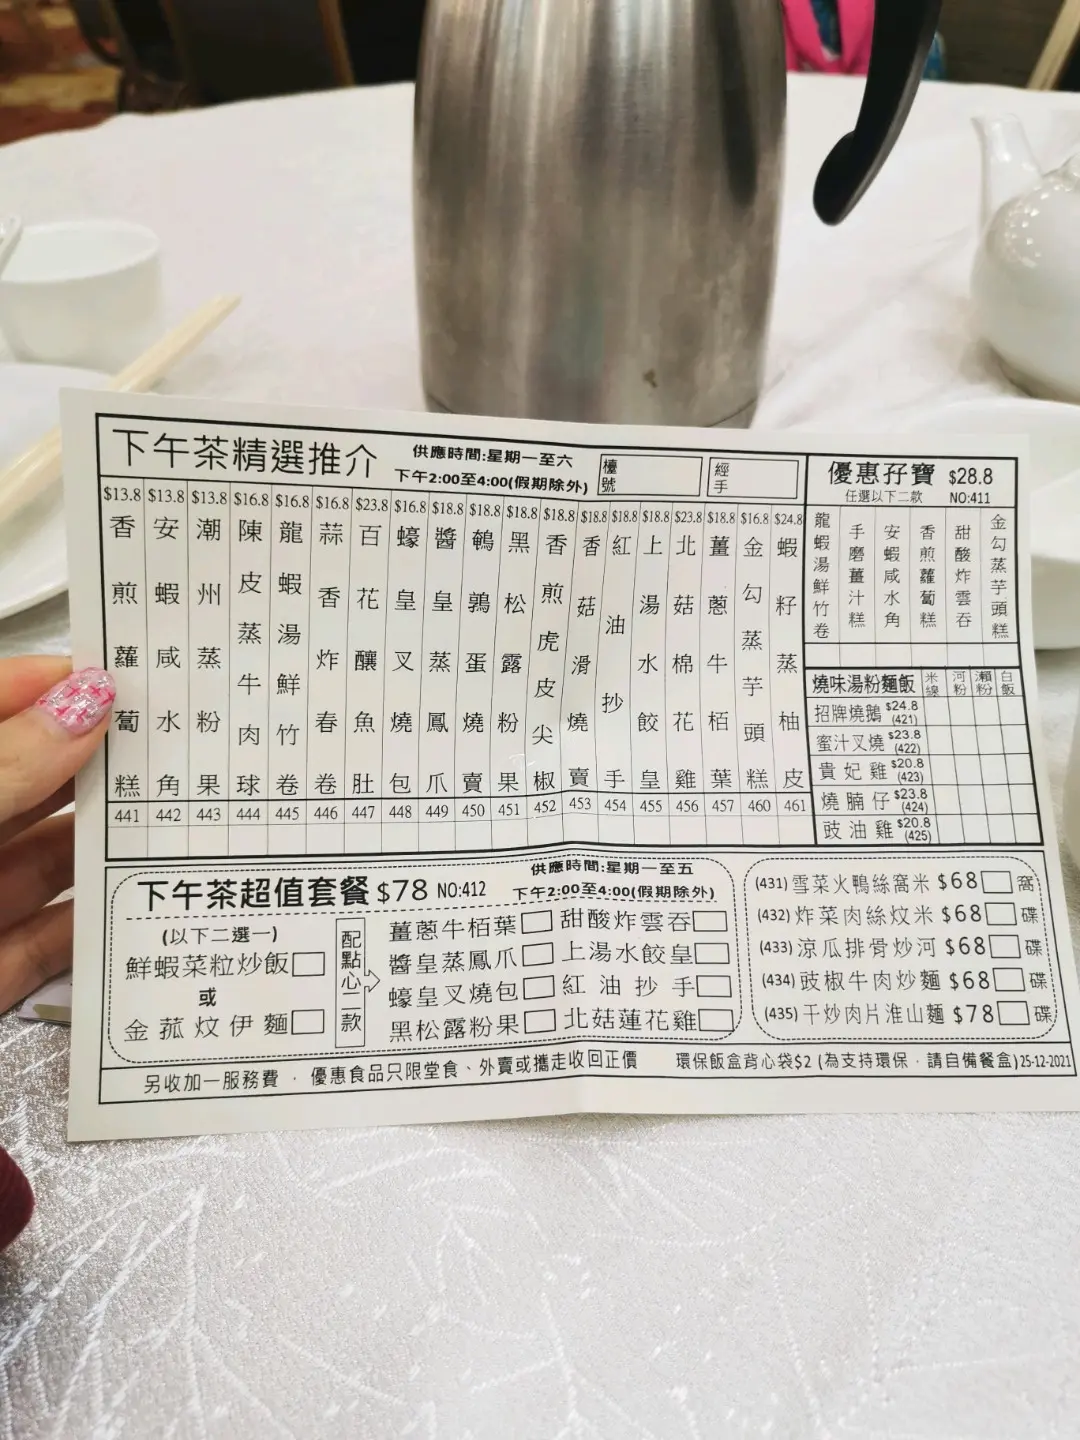 下午茶精選推介
供應時間:星期一至六
下午2:00至4:00(假期除外)
檯號
經手
$13.8 香煎蘿蔔糕 441
$13.8 安蝦咸水角 442
$13.8 潮州蒸粉果 443
$16.8 陳皮蒸牛肉球 444
$16.8 龍蝦湯鮮竹卷 445
$16.8 蒜香炸春卷 446
$23.8 百花釀魚肚 447
$16.8 蠔皇叉燒包 448
$18.8 醬皇蒸鳳爪 449
$18.8 鵪鶉蛋燒賣 450
$18.8 黑松露粉果 451
$18.8 香煎虎皮尖椒 452
$18.8 香菇滑燒賣 453
$18.8 紅油抄手 454
$18.8 上湯水餃皇 455
$23.8 北菇棉花雞 456
$18.8 薑蔥牛栢葉 457
$16.8 金勾蒸芋頭糕 460
$24.8 蝦籽蒸柚皮 461
優惠孖寶 $28.8
任選以下二款 NO:411
龍蝦湯鮮竹卷
手磨薑汁糕
安蝦咸水角
香煎蘿蔔糕
甜酸炸雲吞
金勾蒸芋頭糕
燒味湯粉麵飯 米線 河粉 瀨粉 白飯
招牌燒鵝 $24.8 (421)
蜜汁叉燒 $23.8 (422)
貴妃雞 $20.8 (423)
燒腩仔 $23.8 (424)
豉油雞 $20.8 (425)
下午茶超值套餐 $78 NO:412
供應時間:星期一至五
下午2:00至4:00(假期除外)
(以下二選一)
鮮蝦菜粒炒飯
或
金菰炆伊麵
配點心二款
薑蔥牛栢葉 甜酸炸雲吞
醬皇蒸鳳爪 上湯水餃皇
蠔皇叉燒包 紅油抄手
黑松露粉果 北菇蓮花雞
(431) 雪菜火鴨絲窩米 $68 窩
(432) 炸菜肉絲炆米 $68 碟
(433) 涼瓜排骨炒河 $68 碟
(434) 豉椒牛肉炒麵 $68 碟
(435) 干炒肉片淮山麵 $78 碟
另收加一服務費 , 優惠食品只限堂食、外賣或攜走收回正價 環保飯盒背心袋$2 (為支持環保,請自備餐盒) 25-12-2021